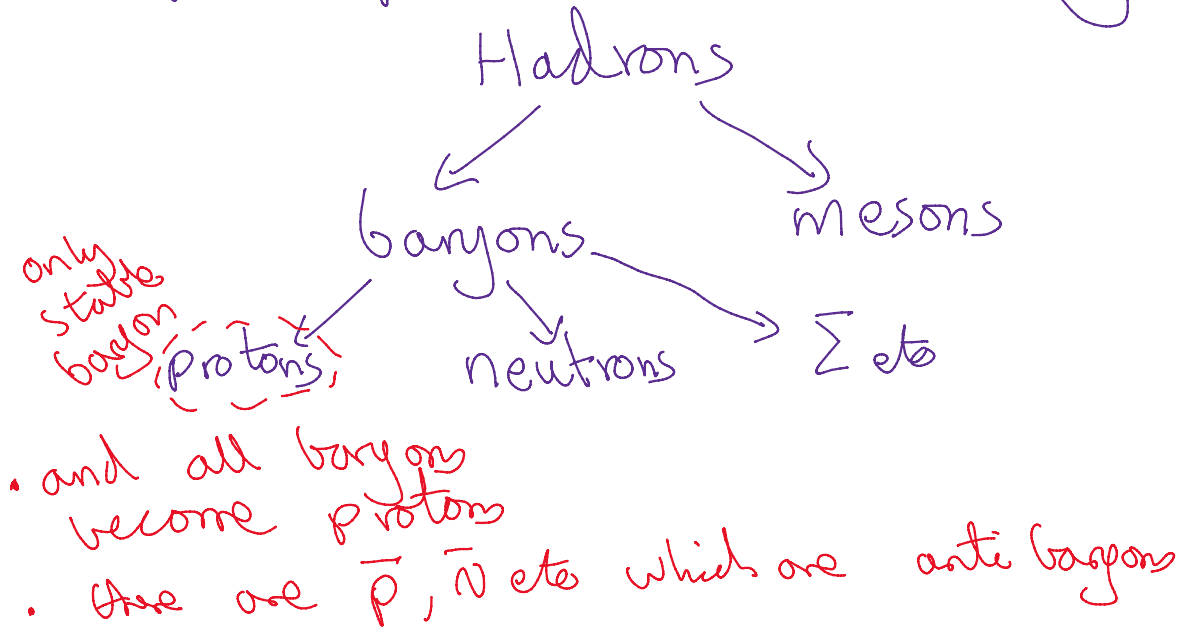 Hadrons
baryons
mesons
only
stable
baryon
protons
neutrons
Σ etc
• and all baryons
become protons
• there are p̄, n̄ etc which are anti baryons